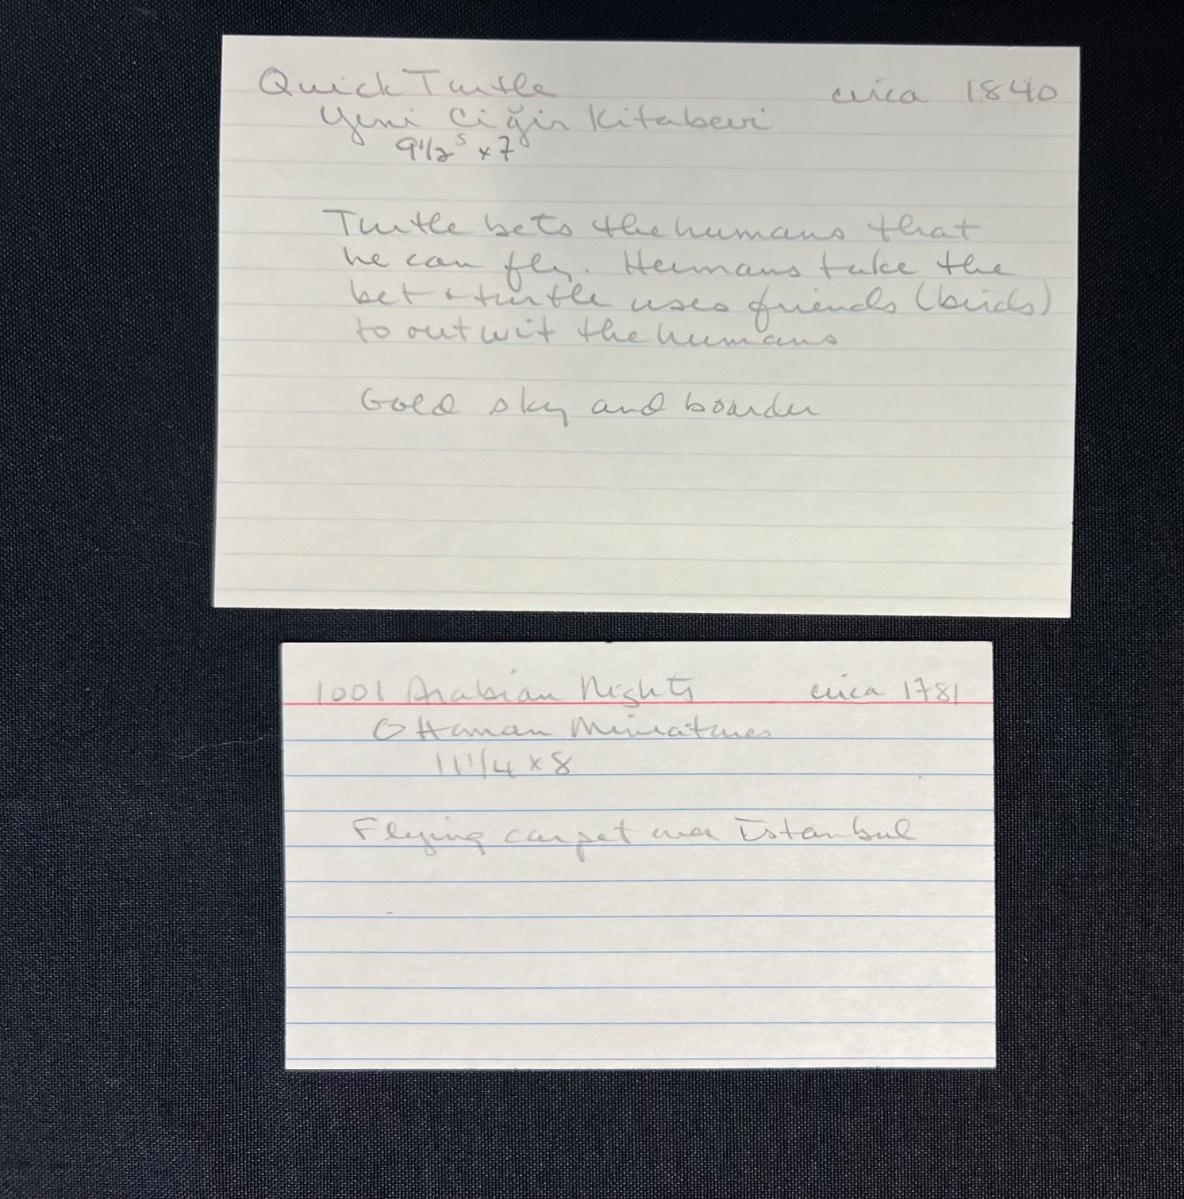 Quick Turtle circa 1840
Yeni Ciğir Kitabevi
9 1/2 x 7
Turtle bets the humans that
he can fly. Humans take the
bet + turtle uses friends (birds)
to outwit the humans
Gold sky and boarder
1001 Arabian Nights circa 1781
Ottaman Miniatures
11 1/4 x 8
Flying carpet over Istanbul